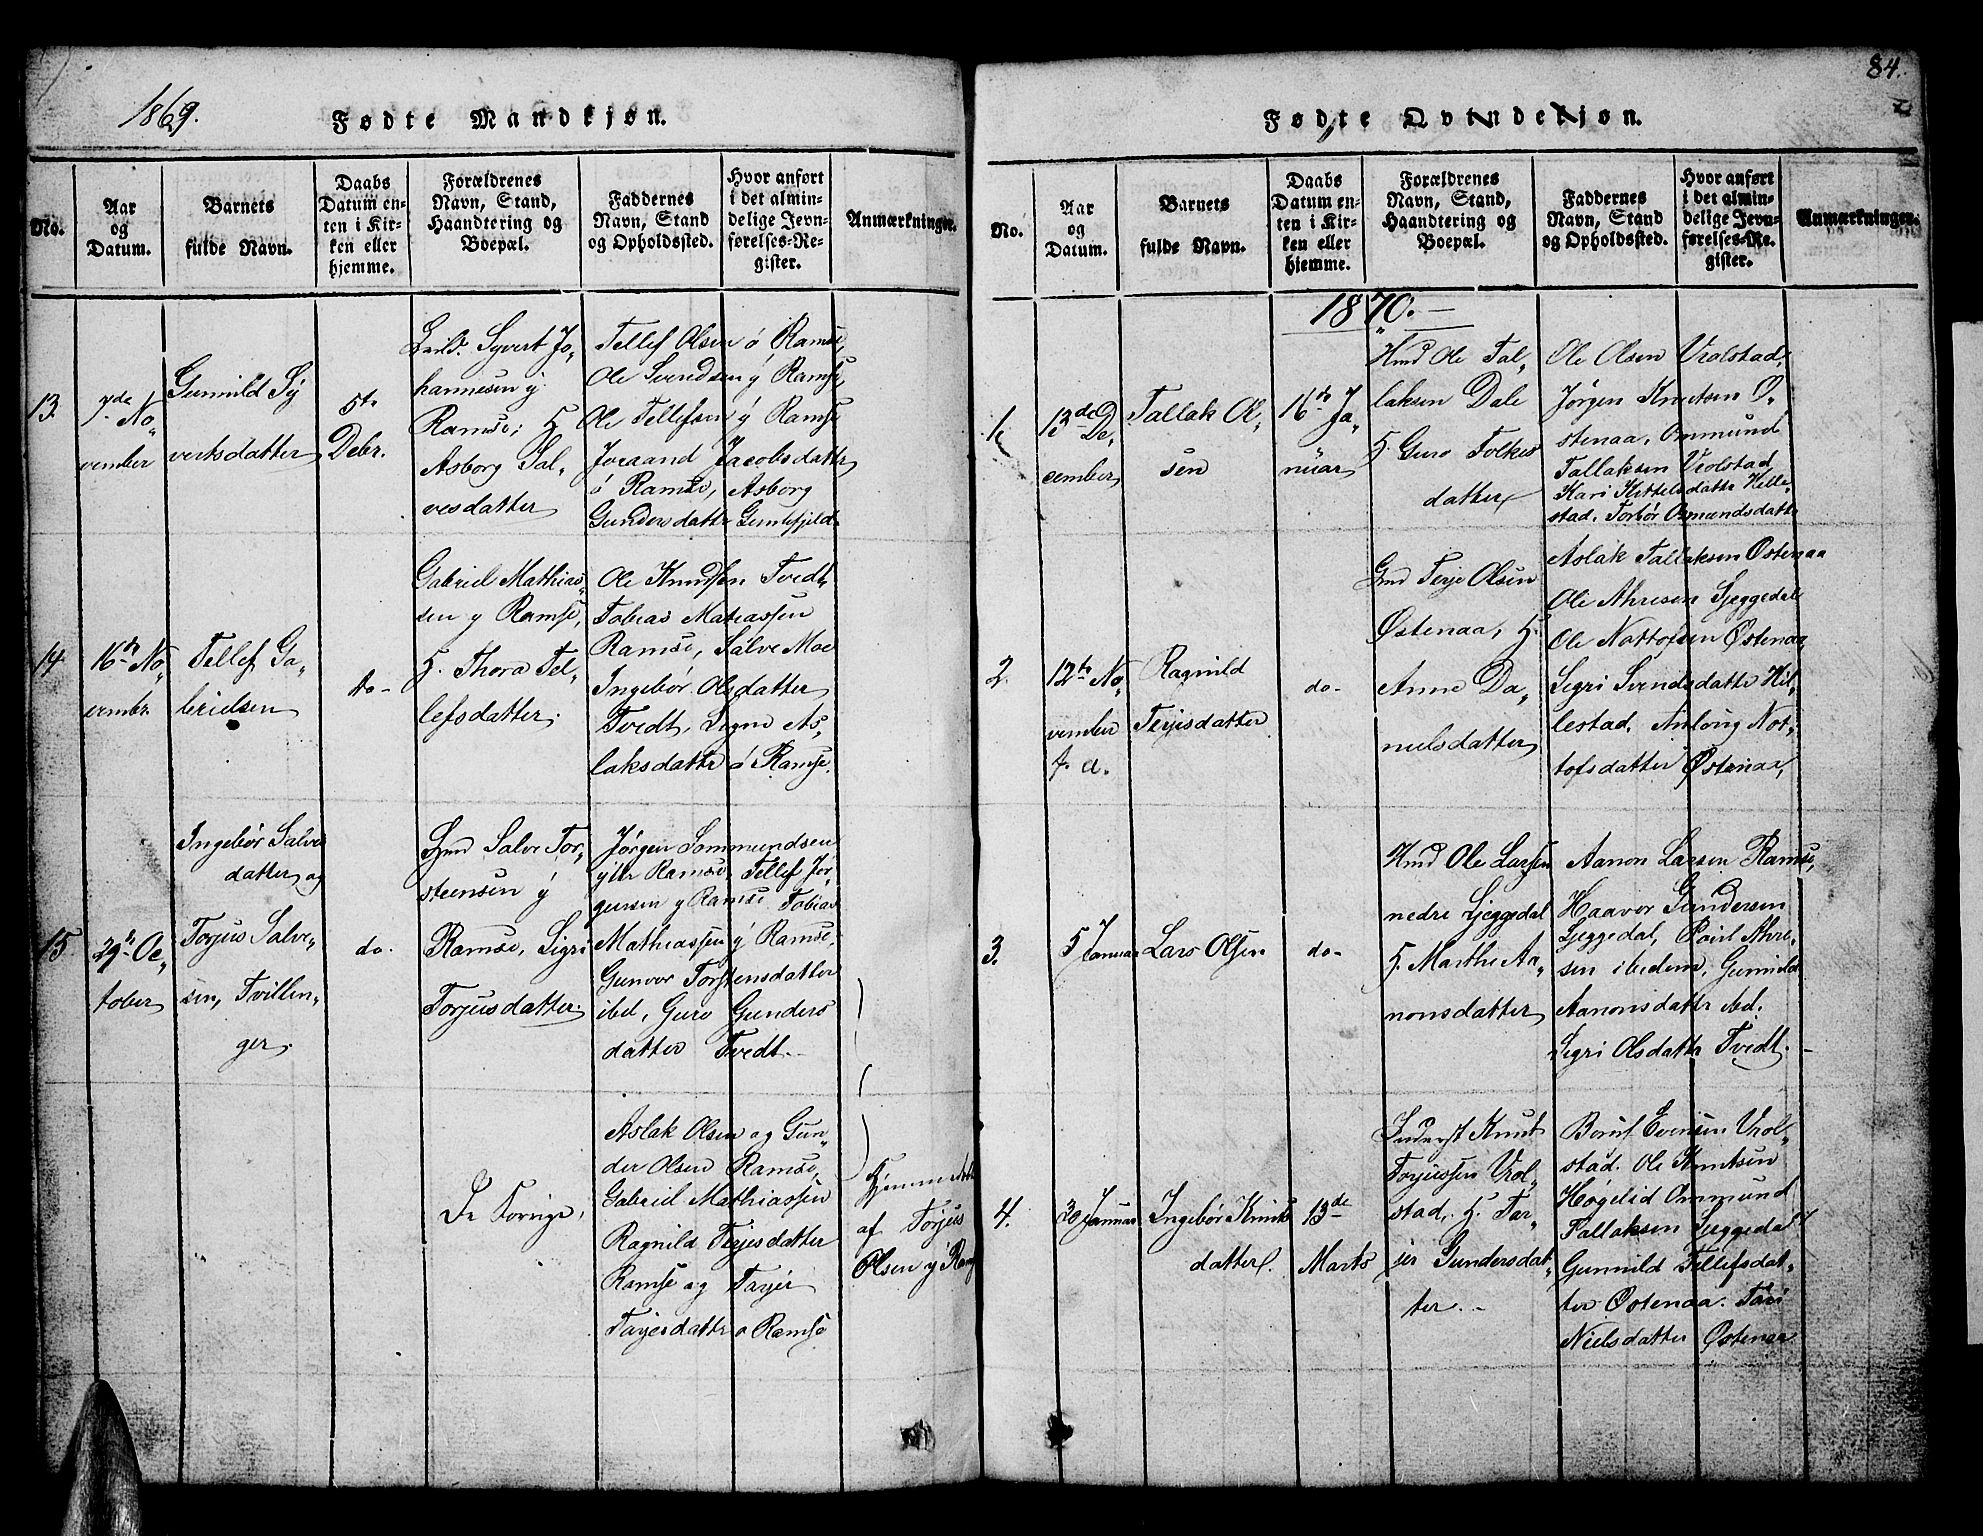 1869.
Fødte Mandkjøn.
No.
Aar
og
Datum.
Barnets
fulde Navn.
Daabs
Datum en-
ten i Kir-
ken eller
hjemme.
Forældrenes
Navn, Stand,
Haandtering og
Boepæl.
Faddernes
Navn, Stand
og Opholdssted.
Hvor anført
i det almin-
delige Jevn-
førelses-Re-
gister.
Anmærkninger.
13.
7de No„
vember
Gunnild Sy
vertsdatter
5te
Debr.
Syvert Jo„
hannesen y.
Ramse; H
Asborg Sal„
vesdatter
Tellef Olsen ö Ramse,
Ole Svendsen y Ramse,
Ole Tellefsen y Ramse
Joraand Jacobsdattr
ö Ramse, Asborg
Gundersdattr
14.
16de No„
vembr.
Tellef Ga„
brielsen
do-
Gabriel Mathias„
sen y Ramse,
H. Thora Tel„
lefsdatter.
Ole Knudsen Tvedt,
Tobias Mathiassen
Ramse, Salve Moe
Ingebør Olsdatter
Tvedt, Signe As„
laksdattr ö Ramse.
15.
29de Oc„
tober
Ingebør Salves
datter og
Torjus Salve„
sen, Tvillin„
ger.
do.
Gmd Salve Tor„
steensen y
Ramse, Sigri
Torjusdatter.
Jørgen Sommundsen
yttr Ramse, Tellef Jør„
gensen y Ramse Tobias
Mathiassen y Ramse,
Gunvor Torstensdatter
ibd, Guro Gunders
datter Tvedt.
De Forrige.
Aslak Olsen og Gun„
der Olsen Ramse,
Gabriel Mathiassen
Ragnild Terjesdatter
Ramse og Tarjer
Tarjesdattr ö Ramse
Hjemmedøbt
af Torjus
Olsen y Rams
84.
Fødte Qvindekjøn.
No.
Aar
og
Datum.
Barnets
fulde Navn.
Daabs
Datum en-
ten i Kir-
ken eller
hjemme.
Forældrenes
Navn, Stand,
Haandtering og
Boepæl.
Faddernes
Navn, Stand
og Opholdssted.
Hvor anført
i det almin-
delige Jevn-
førelses-Re-
gister.
Anmærkninger.
1870.
1.
13de De„
cember
Tallak Ol„
sen
16de Ja„
nuar
Hmd Ole Tal„
laksen Dale
H. Guro Folkes
datter
Ole Olsen Vrolstad,
Jørgen Knutsen Ø„
stenaa, Ommund
Tallaksen Vrolstad
Kari Kittelsdattr Hille„
stad. Torbør Osmundsdattr
2.
12te No„
vember
f. a.
Ragnild
Terjesdatter
do-
Gmd Terje Olsen
Østenaa, H.
Anne Da„
nielsdatter
Aslak Tallaksen Østenaa
Ole Ahresen Ljeggedal
Ole Nottofsen Østenaa,
Sigri Svendsdattr Hil„
lestad, Anlaug Not„
tofsdatter Østenaa,
3.
5 Januar
Lars Olsen
do-
Hmd Ole Larsen
nedre Ljeggedal
H. Marthe Aa„
nonsdatter
Aanon Larsen Ramse,
Haavor Gundersen
Ljeggedal, Povel Ahre„
sen ibidem, Gunnild
Aanonsdattr ibd.
Sigri Olsdattr Tvedt.
4.
30 Januar
Ingebør Knuts
datter.
13de
Marts
Inderst Knut
Torjussen Vrol„
stad, H. Tar„
jer Gundersdat„
ter.
Beruf Evensen Vrol„
stad. Ole Knutsen
Høgelid Ommund
Tallaksen Ljeggedal
Gunnild Tellefsdat„
ter Østenaa. Tari
Nielsdatter Østenaa